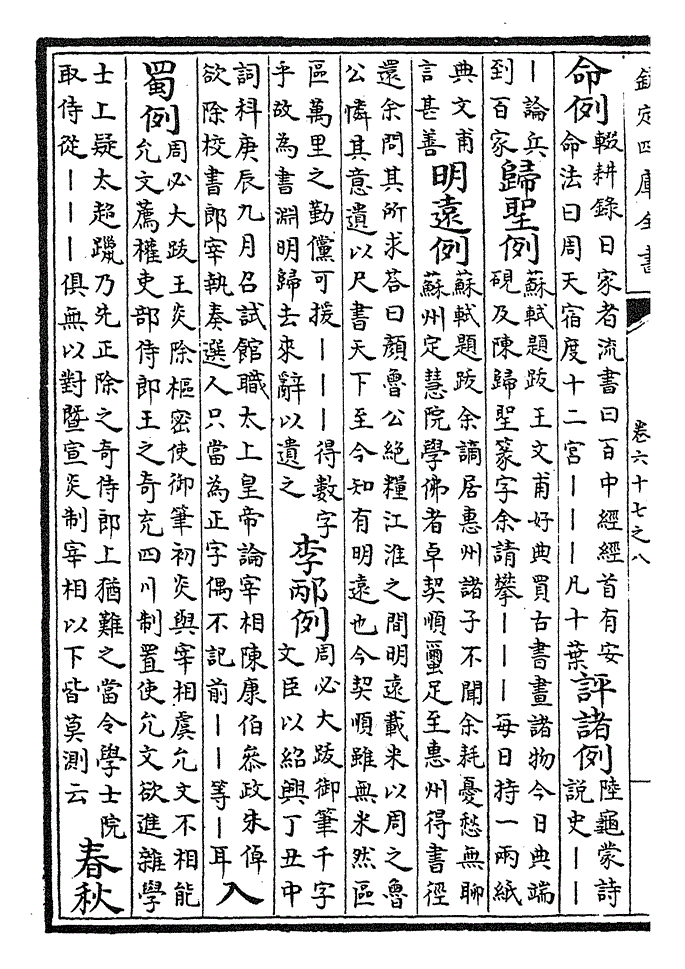 欽定四庫全書
卷六十七之八
命例
輟耕錄日家者流書曰百中經經首有安
命法曰周天宿度十二宮｜｜｜凡十葉
評諸例
陸龜蒙詩
說史｜｜
｜論兵
到百家
歸聖例
蘇軾題跋王文甫好典買古書畫諸物今日典端
硯及陳歸聖篆字余請攀｜｜｜每日持一兩紙
典文甫
言甚善
明遠例
蘇軾題跋余謫居惠州諸子不聞余耗憂愁無聊
蘇州定慧院學佛者卓契順璽足至惠州得書徑
還余問其所求荅曰顏魯公絕糧江淮之間明遠載米以周之魯
公憐其意遺以尺書天下至今知有明遠也今契順雖無米然區
區萬里之勤儻可援｜｜｜得數字
乎故為書淵明歸去來辭以遺之
李邴例
周必大跋御筆千字
文臣以紹興丁丑中
詞科庚辰九月召試館職太上皇帝論宰相陳康伯叅政朱倬
欲除校書郎宰執奏選人只當為正字偶不記前｜｜等｜耳
入
蜀例
周必大跋王炎除樞密使御筆初炎與宰相虞允文不相能
允文薦權吏部侍郎王之奇充四川制置使允文欲進雜學
士上疑太超躐乃先正除之奇侍郎上猶難之當令學士院
取侍從｜｜｜俱無以對暨宣炎制宰相以下皆莫測云
春秋